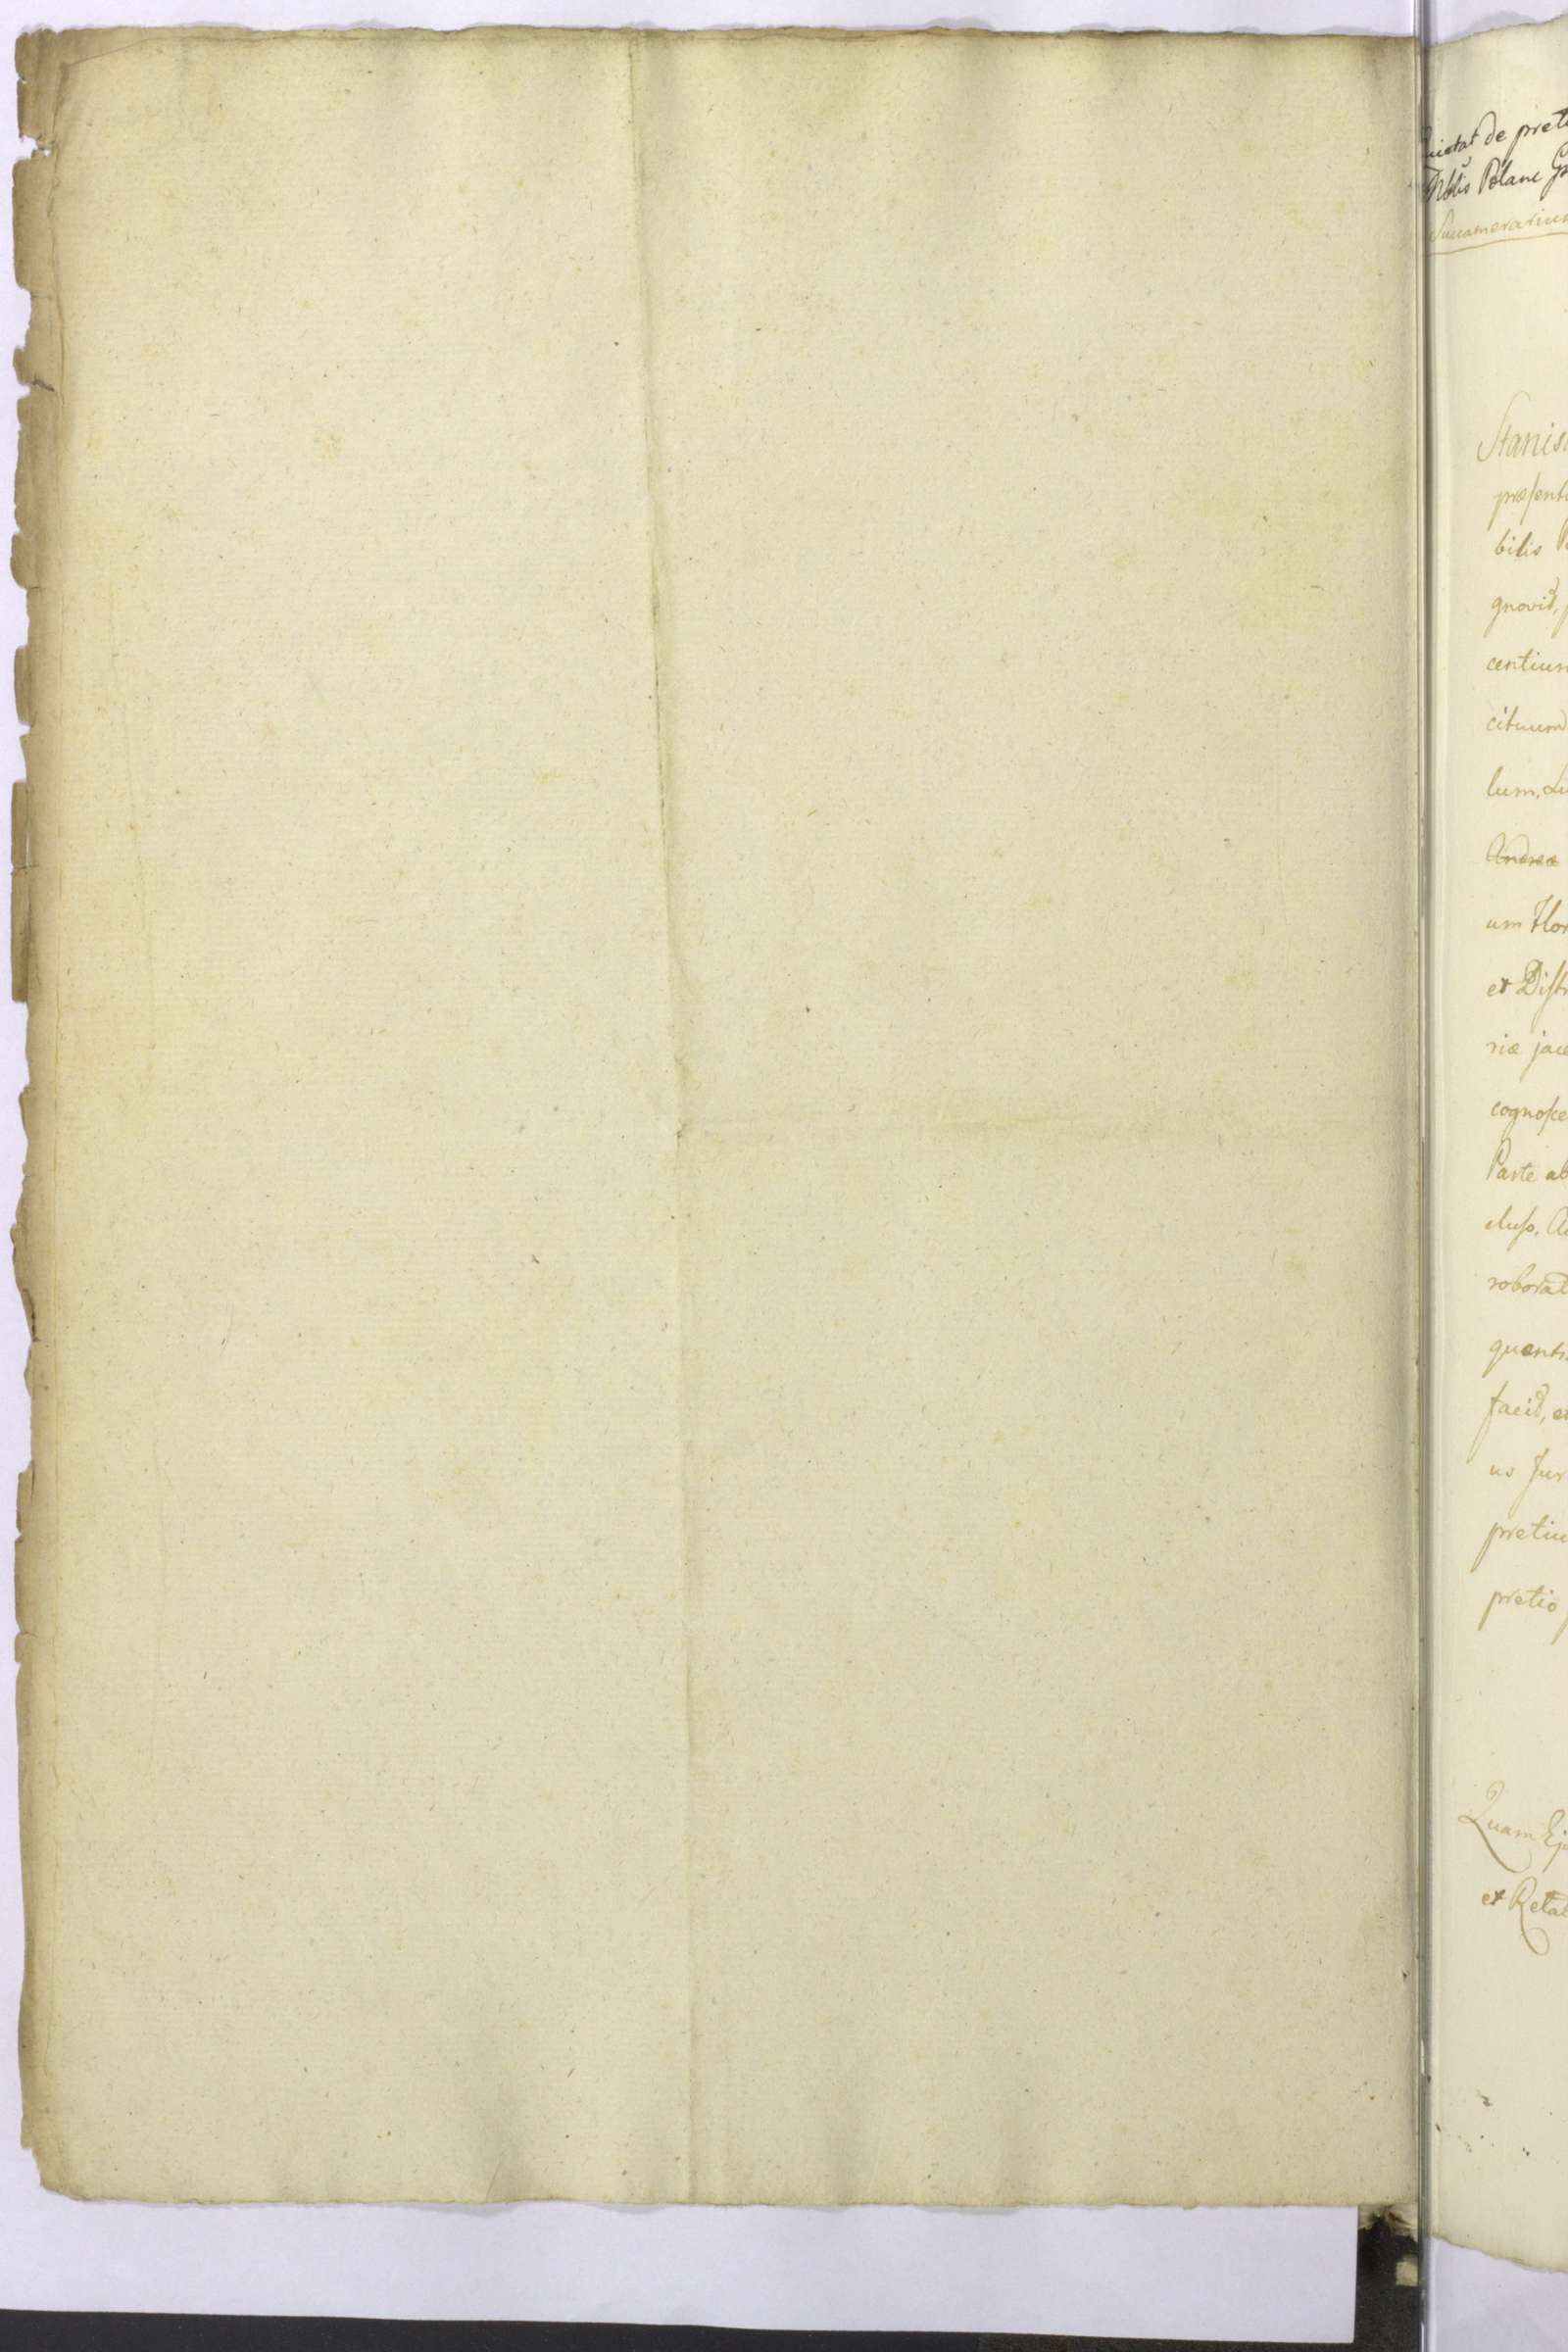 de preti
Nblis Polane Gr
Succamerarius
Stanis
præsenti
bilis
gnovit,
centium
cituum
lum, Lu
Andreæ
um Flor
et Distr
riæ jace
cognosce
Parte ab
clusо, Ac
roborat
quenti
facit, et
us Jur
pretiu
pretio
Quam Ej
et Relat